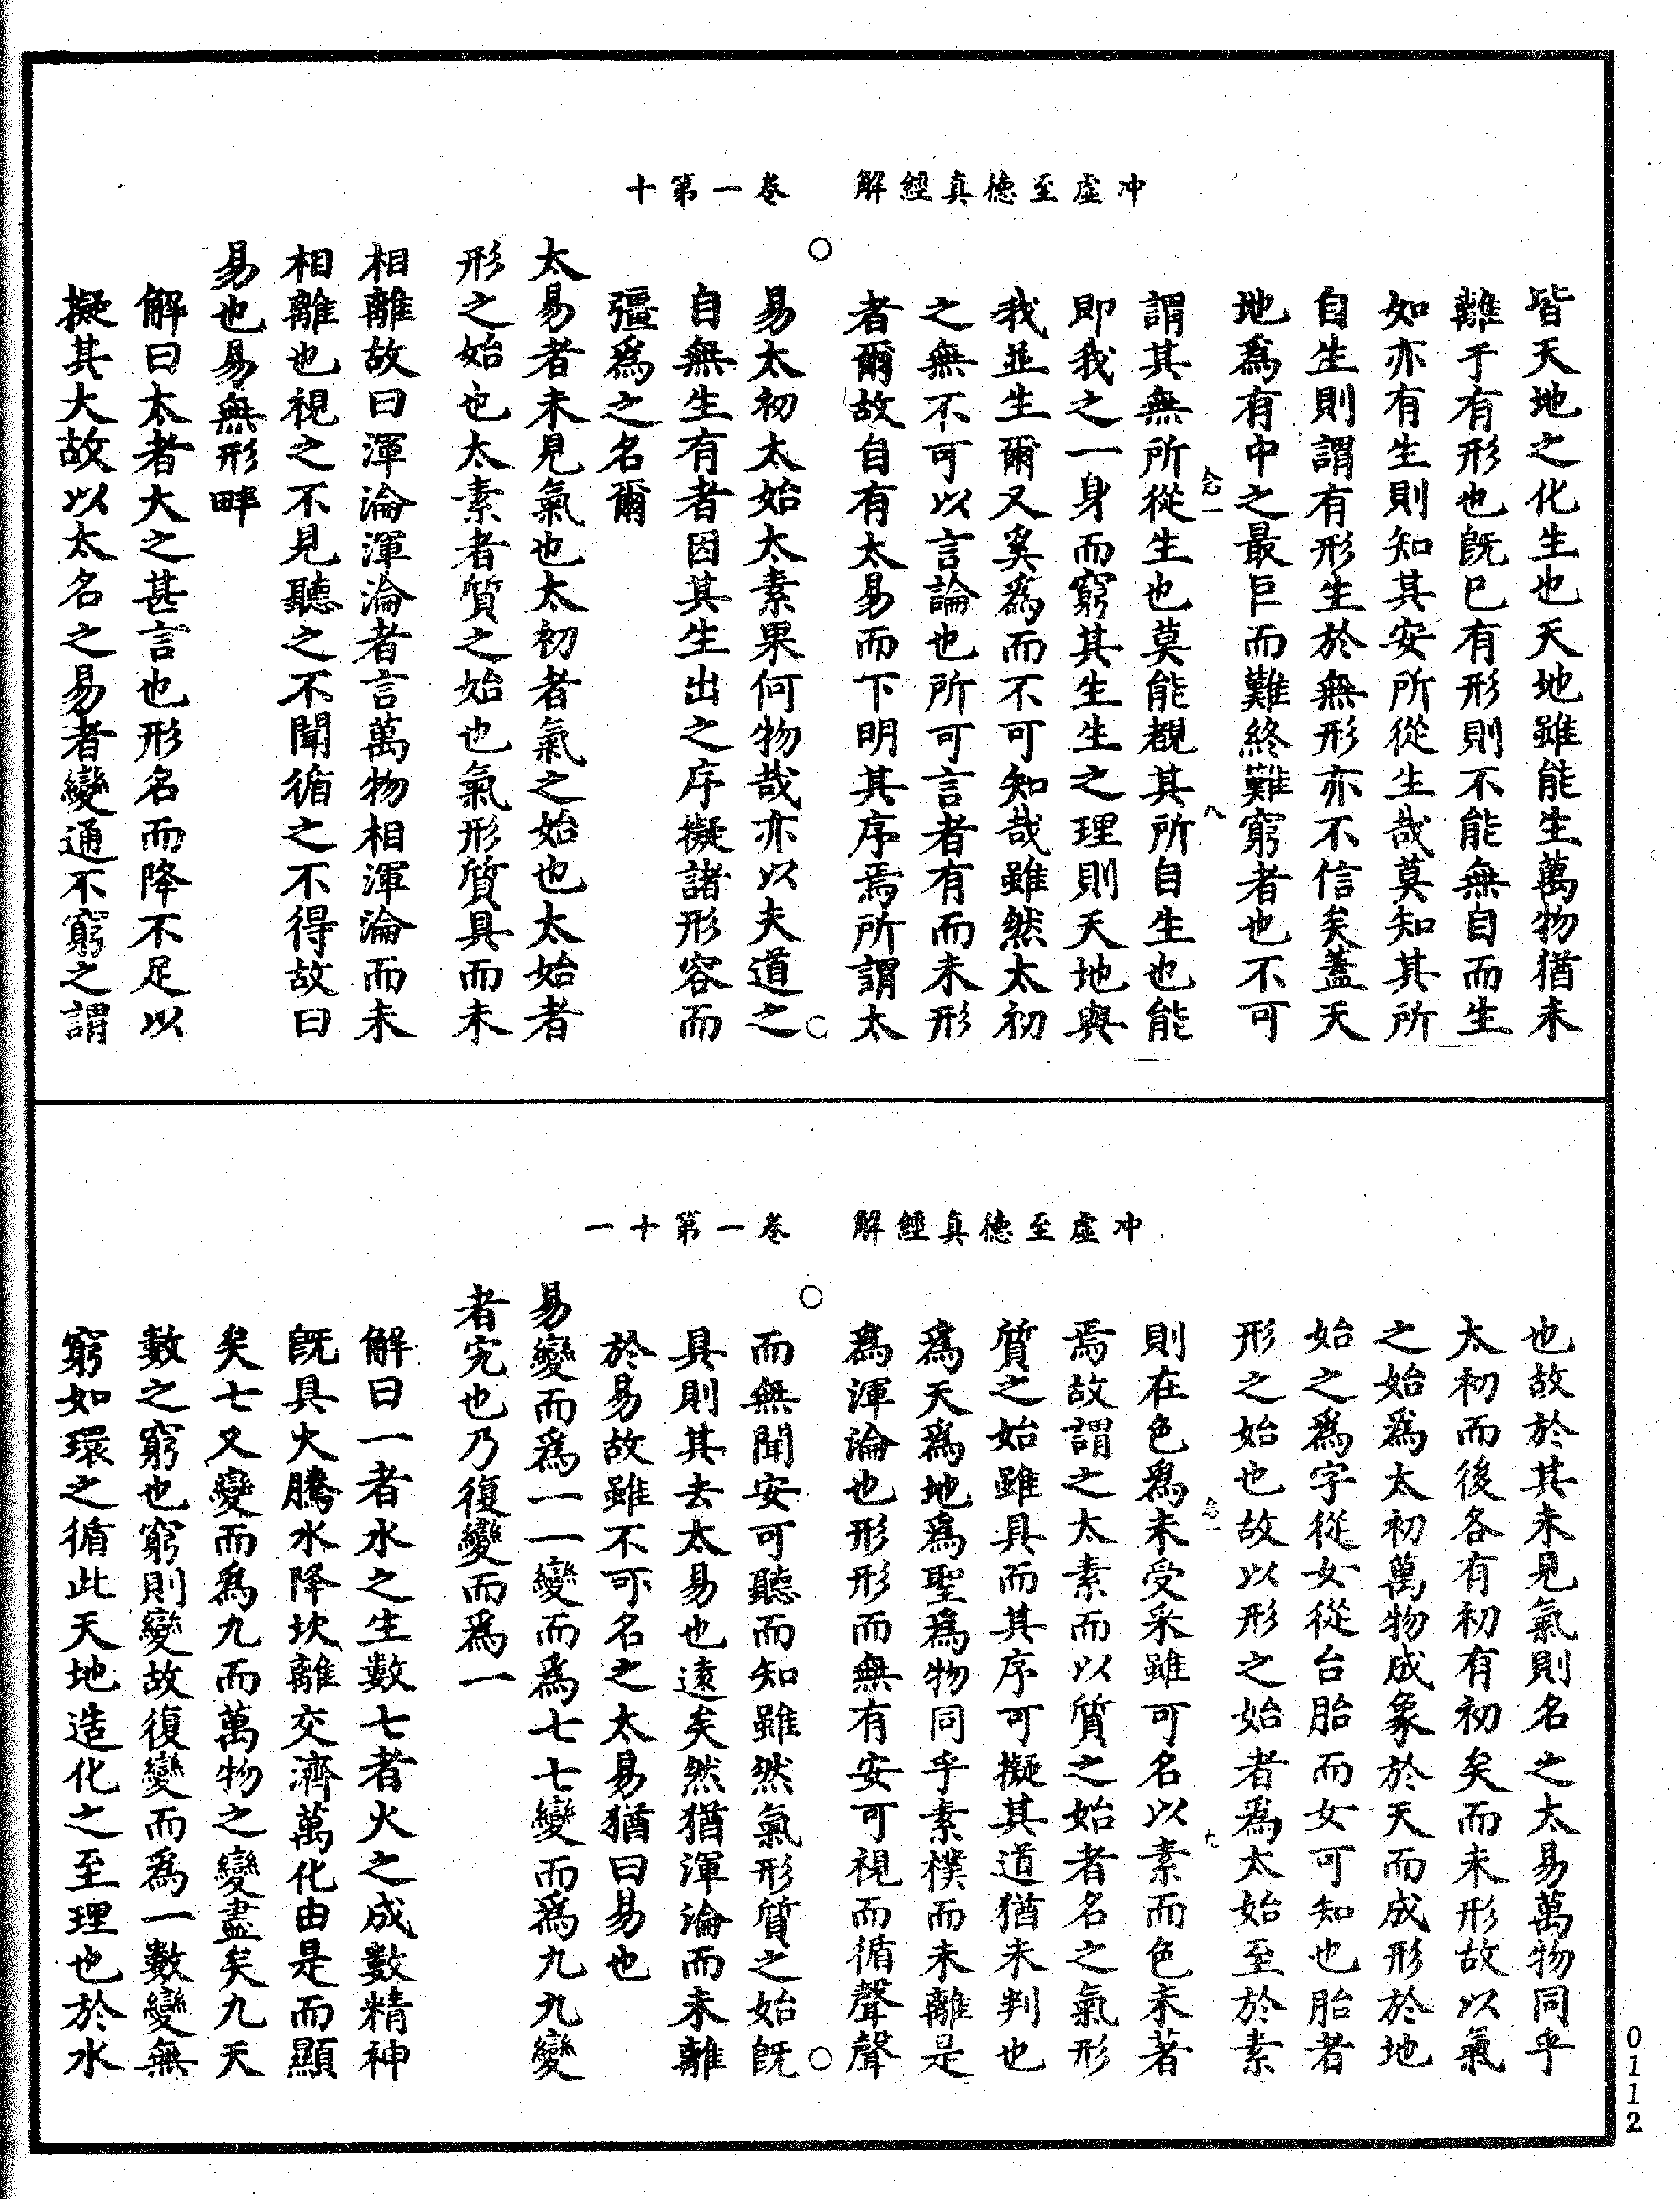 冲虛至德真經解　卷一第十
皆天地之化生也天地雖能生萬物猶未
離于有形也旣已有形則不能無自而生
如亦有生則知其安所從生哉莫知其所
自生則謂有形生於無形亦不信矣蓋天
地爲有中之最巨而難終難窮者也不可
謂其無所從生也莫能覩其所自生也能
即我之一身而窮其生生之理則天地與
我並生爾又奚爲而不可知哉雖然太初
之無不可以言論也所可言者有而未形
者爾故自有太易而下明其序焉所謂太
易太初太始太素果何物哉亦以夫道之
自無生有者因其生出之序擬諸形容而
彊爲之名爾
太易者未見氣也太初者氣之始也太始者
形之始也太素者質之始也氣形質具而未
相離故曰渾淪渾淪者言萬物相渾淪而未
相離也視之不見聽之不聞循之不得故曰
易也易無形畔
解曰太者大之甚言也形名而降不足以
擬其大故以太名之易者變通不窮之謂
冲虛至德真經解　卷一第十一
也故於其未見氣則名之太易萬物同乎
太初而後各有初有初矣而未形故以氣
之始爲太初萬物成象於天而成形於地
始之爲字從女從台胎而女可知也胎者
形之始也故以形之始者爲太始至於素
則在色爲未受采雖可名以素而色未著
焉故謂之太素而以質之始者名之氣形
質之始雖具而其序可擬其道猶未判也
爲天爲地爲聖爲物同乎素樸而未離是
爲渾淪也形形而無有安可視而循聲聲
而無聞安可聽而知雖然氣形質之始旣
具則其去太易也遠矣然猶渾淪而未離
於易故雖不可名之太易猶曰易也
易變而爲一一變而爲七七變而爲九九變
者究也乃復變而爲一
解曰一者水之生數七者火之成數精神
旣具火騰水降坎離交濟萬化由是而顯
矣七又變而爲九而萬物之變盡矣九天
數之窮也窮則變故復變而爲一數變無
窮如環之循此天地造化之至理也於水
0112